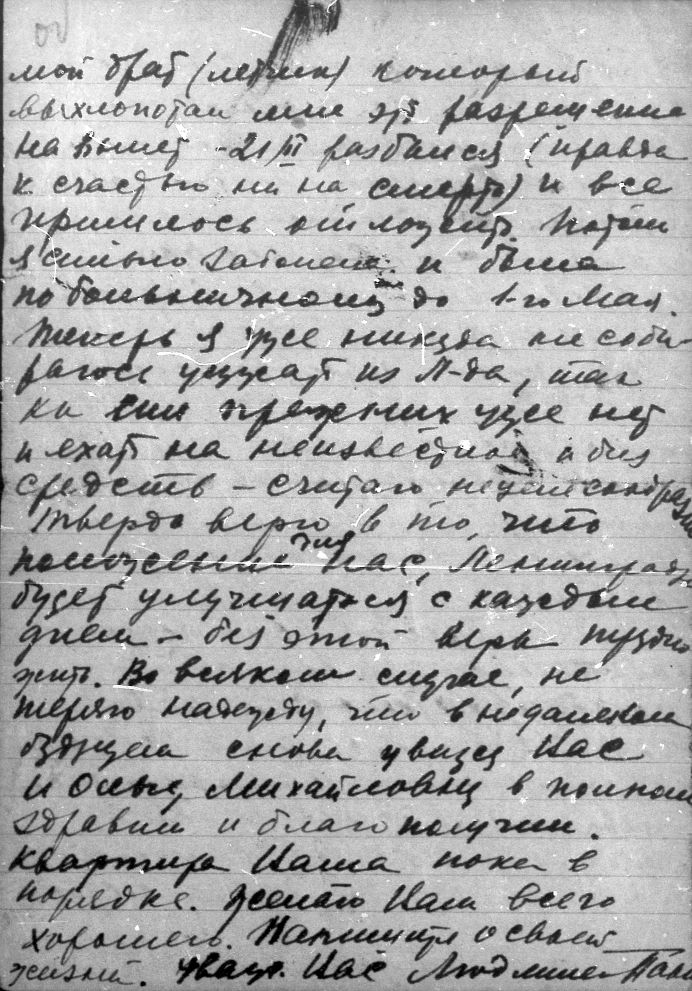 мой брат (летчик) который
выхлопотал мне это разрешение
на вылет - 21/III разбился (правда
к счастью ни на смерть) и все
пришлось отложить. Потом
я сильно заболела и была
по больничному до 1-го Мая.
Теперь я уже никуда не соби-
раюсь уезжать из Л-да, так
ка сил прежних уже нет
и ехать на неизвестное и без
средств - считаю нецелесообразн
Твердо верю в то, что
положение для нас, Ленинградц
будет улучшаться с каждым
днем - без этой веры трудно
жить. Во всяком случае, не
теряю надежду, что в недалеком
будущем снова увижу Вас
и Ольгу Михайловну в полном
здравии и благополучии.
Квартира Ваша пока в
порядке. Желаю Вам всего
хорошего. Напишите о своей
жизни. Уваж. Вас Людмила